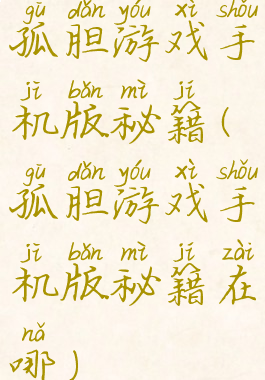 gū dǎn yóu xì shǒu
孤胆游戏手
jī bǎn mì jí
机版秘籍(
gū dǎn yóu xì shǒu
孤胆游戏手
jī bǎn mì jí zài
机版秘籍在
nǎ
哪)